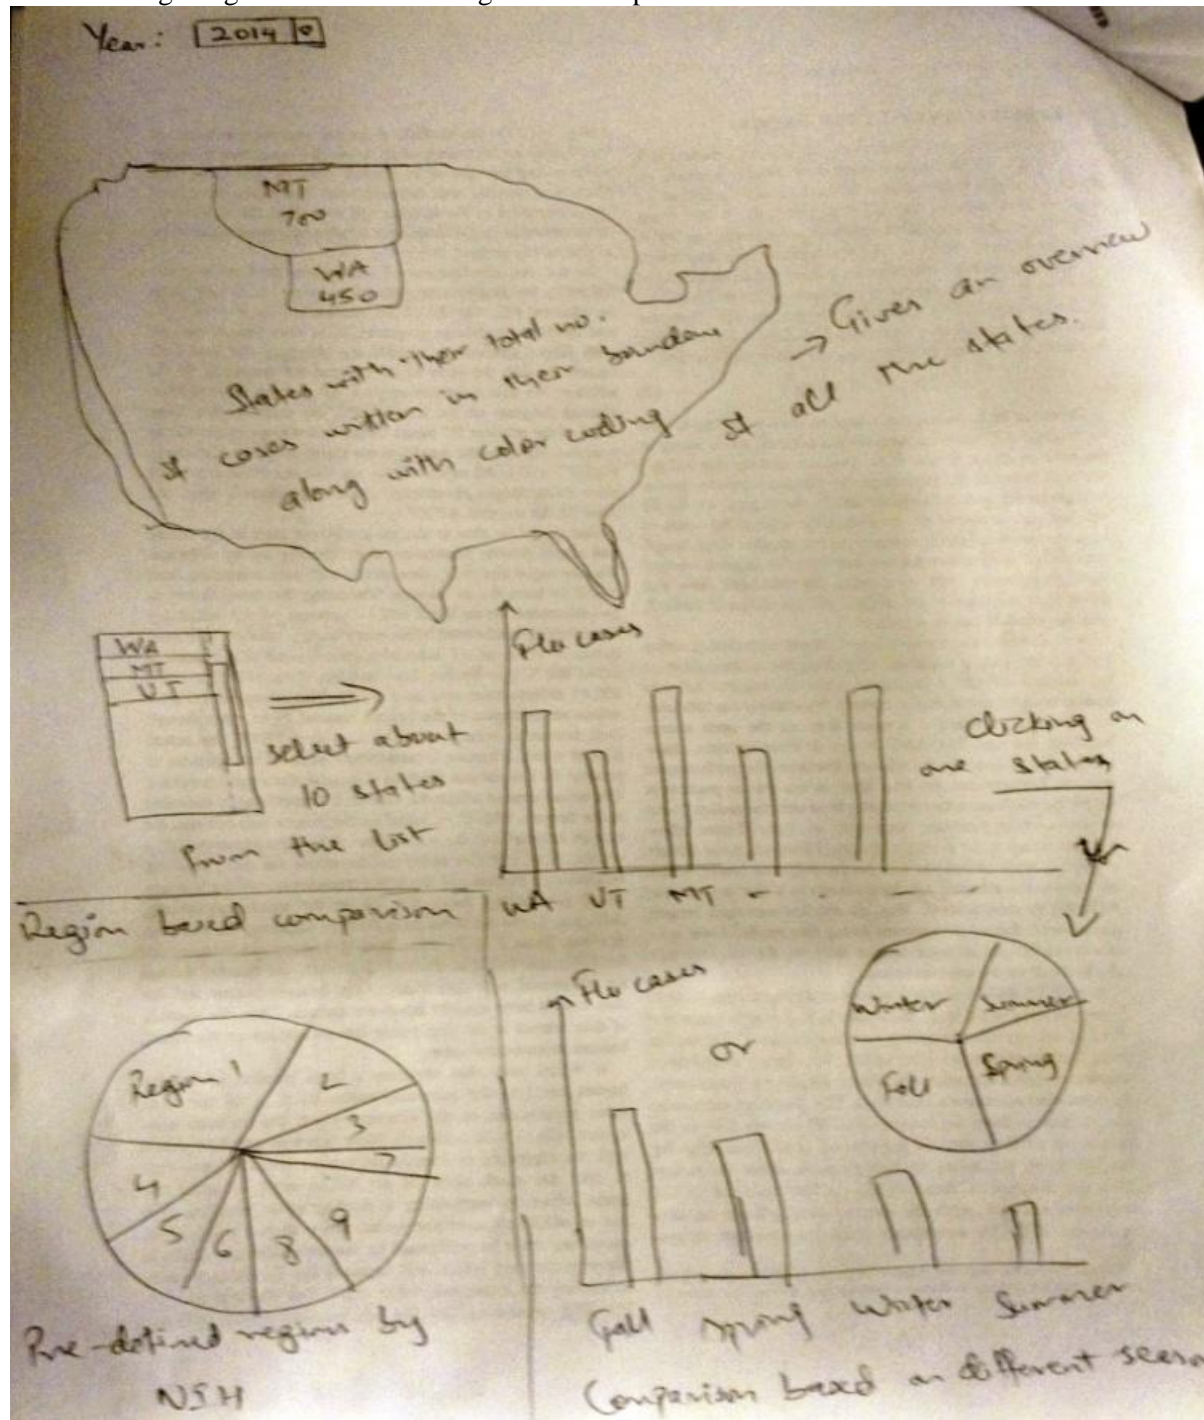 Year: 2014
MT
700
WA
450
States with their total no.
of cases written in their boundary
along with color coding
→ Gives an overview
of all the states.
WA
MT
VT
select about
10 states
from the list
Flu cases
WA VT MT - . - -
clicking on
one states
Region based comparison
Region 1
2
3
7
4
5
6
8
9
Pre-defined regions by
NSH
Flu cases
or
Winter
Summer
Fall
Spring
Fall Spring Winter Summer
Comparison based on different